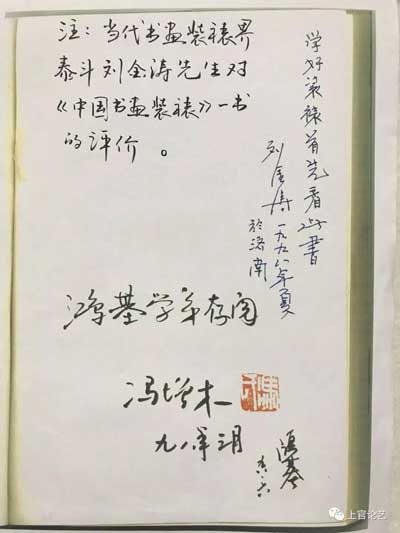 注：当代书画装裱界
泰斗刘金涛先生对
《中国书画装裱》一书
的评价。
学好装裱首先看此书
刘金涛
一九九八年夏
於济南
鸿基学弟存阅
冯增木
九八年二月
上官论艺